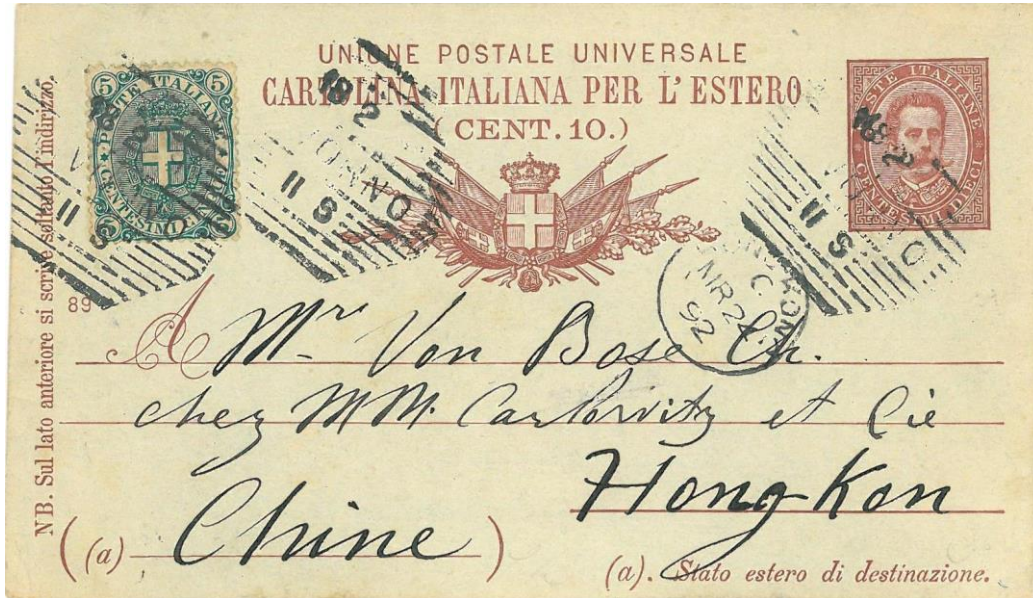 UNIONE POSTALE UNIVERSALE
CARTOLINA ITALIANA PER L'ESTERO
(CENT. 10.)
5 POSTE ITALIANE 5
CENTESIMI CINQUE
POSTE ITALIANE
CENTESIMI DIECI
18 2
11 S
18 2
11 S
11 S
C
MR 24
92
89
NB. Sul lato anteriore si scrive soltanto l'indirizzo.
A Mr Von Bose Ch.
chez MM. Carlowitz et Cie
Hong Kon
(a) Chine
(a). Stato estero di destinazione.